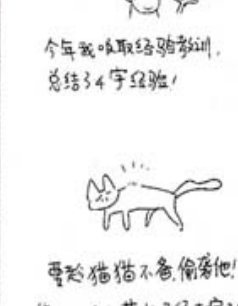 今年我吸取经验教训,
总结了4字经验!
要趁猫猫不备,偷袭他!